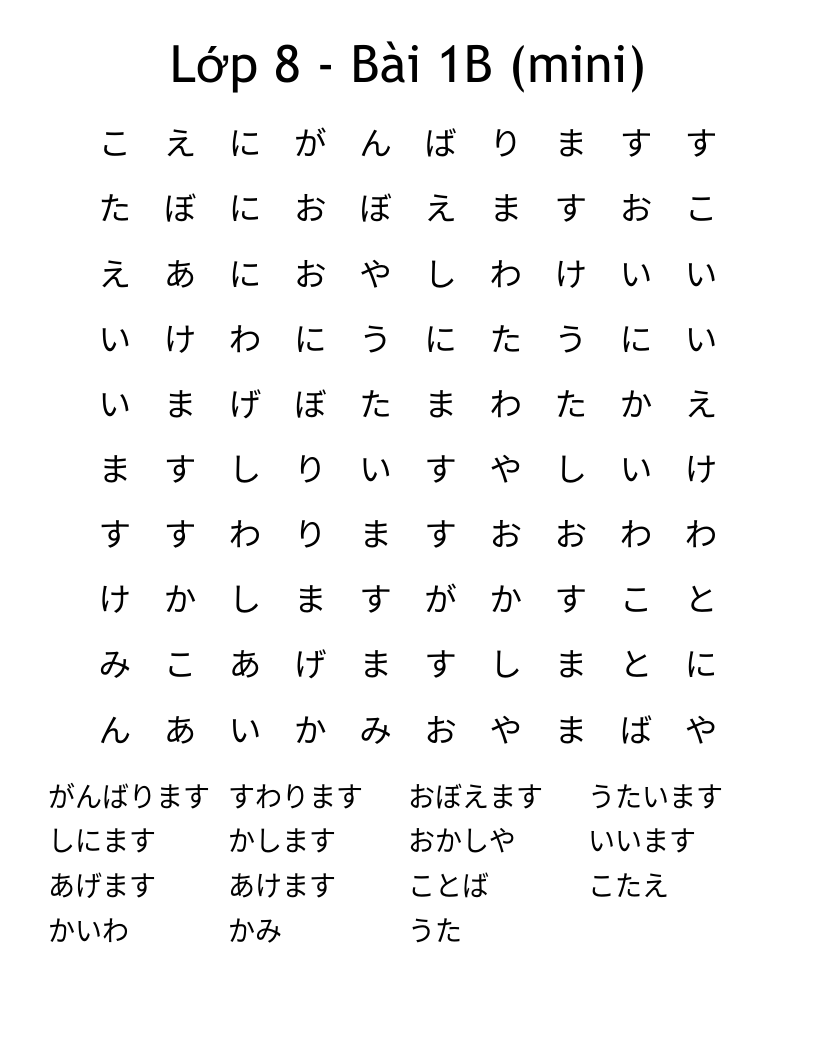 Lớp 8 - Bài 1B (mini)
こ え に が ん ば り ま す す
た ぼ に お ぼ え ま す お こ
え あ に お や し わ け い い
い け わ に う に た う に い
い ま げ ぼ た ま わ た か え
ま す し り い す や し い け
す す わ り ま す お お わ わ
け か し ま す が か す こ と
み こ あ げ ま す し ま と に
ん あ い か み お や ま ば や
がんばります すわります おぼえます うたいます
しにます かします おかしや いいます
あげます あけます ことば こたえ
かいわ かみ うた